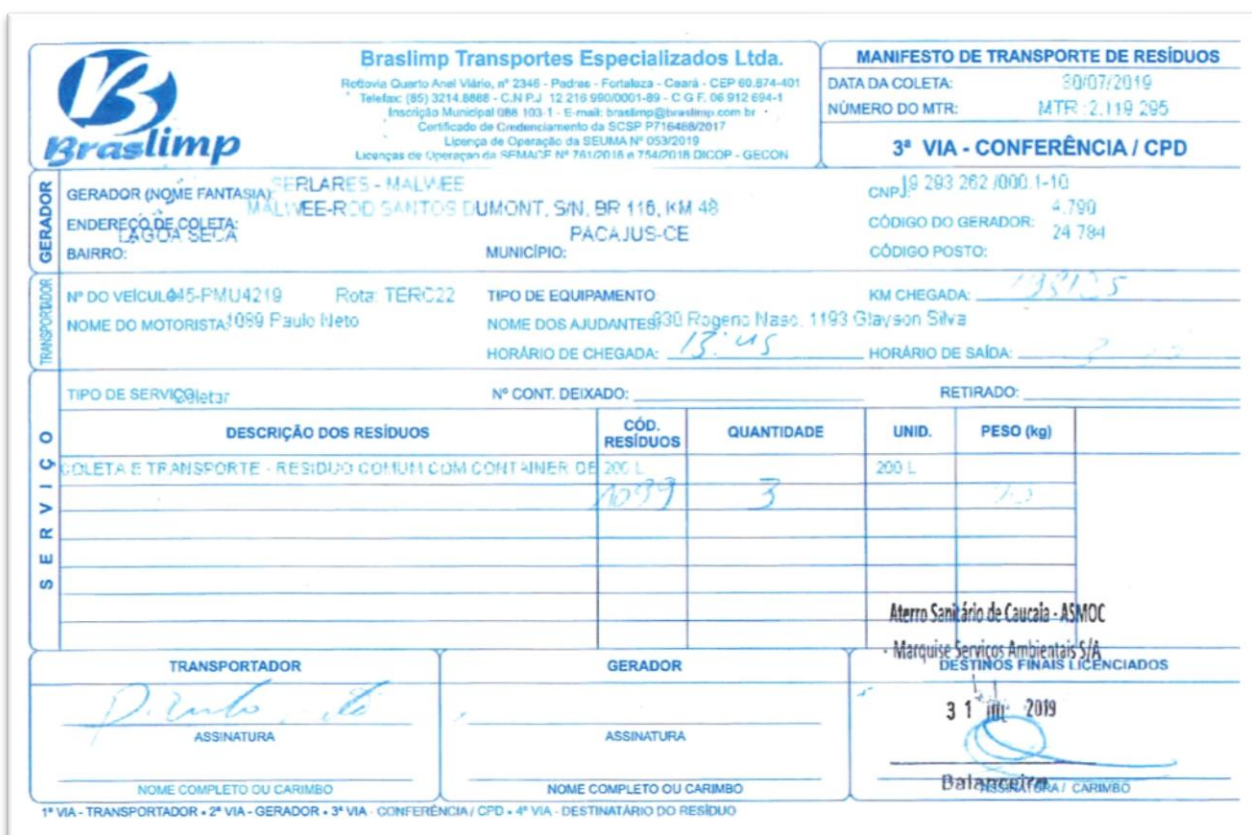 Braslimp
Braslimp Transportes Especializados Ltda.
Rodovia Quarto Anel Viário, nº 2346 - Pedras - Fortaleza - Ceará - CEP 60.874-401
Telefax: (85) 3214.8888 - C.N.P.J. 12 216 990/0001-89 - C G F. 06 912 694-1
Inscrição Municipal 088 103-1 - E-mail: braslimp@braslimp.com br
Certificado de Credenciamento da SCSP P716468/2017
Licença de Operação da SEUMA Nº 053/2019
Licenças de Operação da SEMACE Nº 761/2016 e 754/2016 DICOP - GECON
MANIFESTO DE TRANSPORTE DE RESÍDUOS
DATA DA COLETA: 30/07/2019
NÚMERO DO MTR: MTR :2.119 295
3ª VIA - CONFERÊNCIA / CPD
GERADOR
GERADOR (NOME FANTASIA): SERLARES - MALWEE
CNPJ: 19 293 262 /000.1-10
ENDEREÇO DE COLETA: MALWEE-ROD SANTOS DUMONT, S/N, BR 116, KM 48
CÓDIGO DO GERADOR: 4.790
BAIRRO: LAGOA SECA MUNICÍPIO: PACAJUS-CE
CÓDIGO POSTO: 24 784
TRANSPORTADOR
Nº DO VEÍCULO 045-PMU4219 Rota: TERC22 TIPO DE EQUIPAMENTO KM CHEGADA:
NOME DO MOTORISTA: 1089 Paulo Neto NOME DOS AJUDANTES: 930 Rogerio Nasc. 1193 Glayson Silva
HORÁRIO DE CHEGADA: 13:45 HORÁRIO DE SAÍDA:
SERVIÇO
TIPO DE SERVIÇO: Coletar Nº CONT. DEIXADO: RETIRADO:
DESCRIÇÃO DOS RESÍDUOS CÓD. RESÍDUOS QUANTIDADE UNID. PESO (kg)
COLETA E TRANSPORTE - RESIDUO COMUM COM CONTAINER DE 200 L 200 L
1099 3
Aterro Sanitário de Caucaia - ASMOC
Marquise Serviços Ambientais S/A
TRANSPORTADOR GERADOR DESTINOS FINAIS LICENCIADOS
31 JUL 2019
ASSINATURA ASSINATURA
Balanceiro ASSINATURA / CARIMBO
NOME COMPLETO OU CARIMBO NOME COMPLETO OU CARIMBO
1ª VIA - TRANSPORTADOR • 2ª VIA - GERADOR • 3ª VIA - CONFERÊNCIA / CPD • 4ª VIA - DESTINATÁRIO DO RESÍDUO